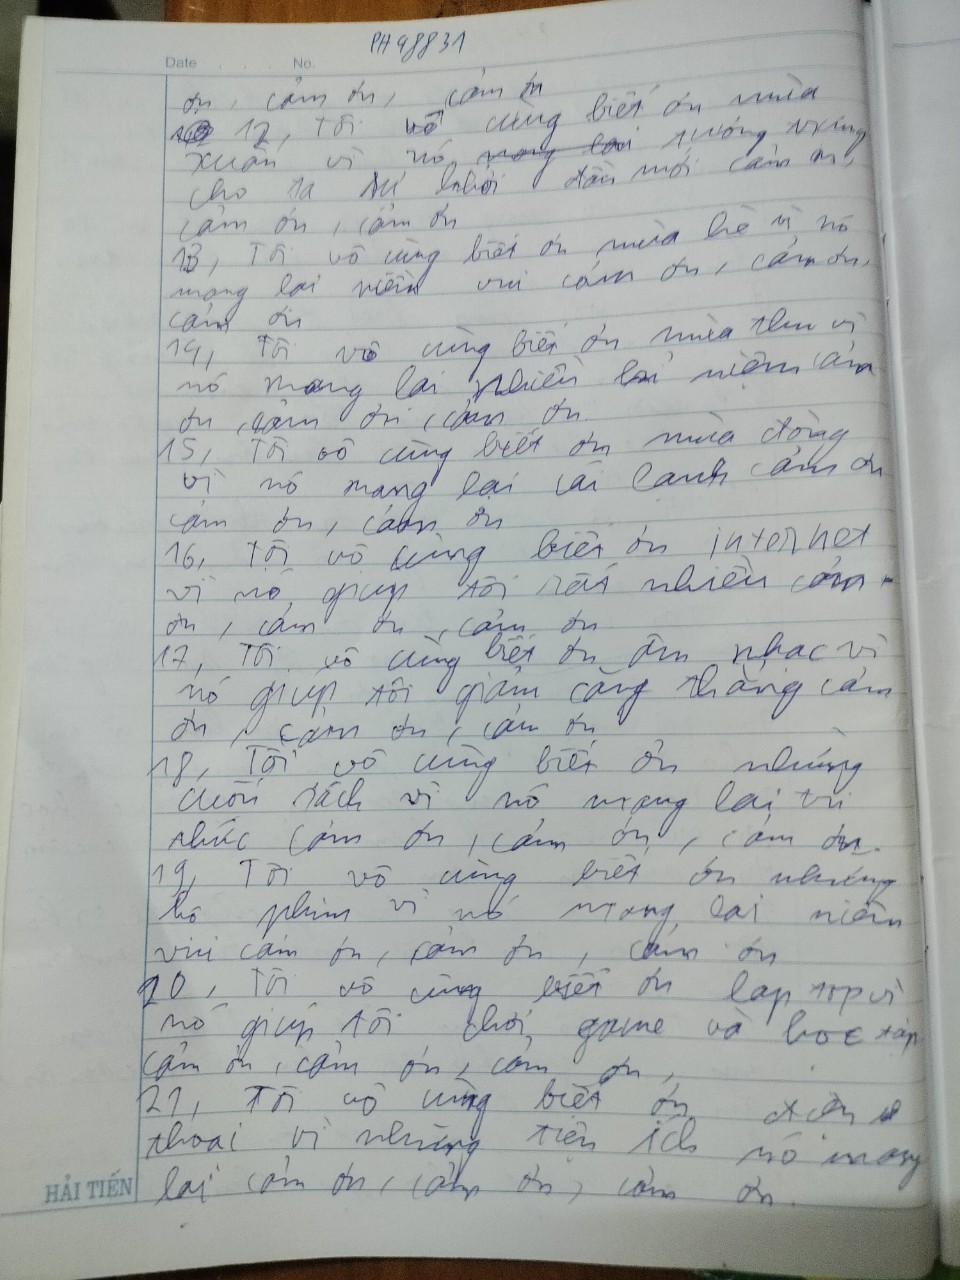 PH98831
Date . . . No.
ơn, cảm ơn, cảm ơn
12, Tôi vô cùng biết ơn mùa
xuân vì nó tượng trưng
cho ta sự khởi đầu mới cảm ơn,
cảm ơn, cảm ơn
13, Tôi vô cùng biết ơn mùa hè vì nó
mang lại niềm vui cảm ơn, cảm ơn,
cảm ơn
14, Tôi vô cùng biết ơn mùa thu vì
nó mang lại nhiều kỉ niệm cảm
ơn, cảm ơn, cảm ơn
15, Tôi vô cùng biết ơn mùa đông
vì nó mang lại cái lạnh cảm ơn
cảm ơn, cảm ơn
16, Tôi vô cùng biết ơn internet
vì nó giúp tôi rất nhiều cảm
ơn, cảm ơn, cảm ơn
17, Tôi vô cùng biết ơn âm nhạc vì
nó giúp tôi giảm căng thẳng cảm
ơn, cảm ơn, cảm ơn
18, Tôi vô cùng biết ơn những
cuốn sách vì nó mang lại tri
thức cảm ơn, cảm ơn, cảm ơn.
19, Tôi vô cùng biết ơn những
bộ phim vì nó mang lại niềm
vui cảm ơn, cảm ơn, cảm ơn
20, Tôi vô cùng biết ơn laptop vì
nó giúp tôi chơi game và học tập
cảm ơn, cảm ơn, cảm ơn,
21, Tôi vô cùng biết ơn điện
thoại vì những tiện ích nó mang
lại cảm ơn, cảm ơn, cảm ơn.
HẢI TIẾN